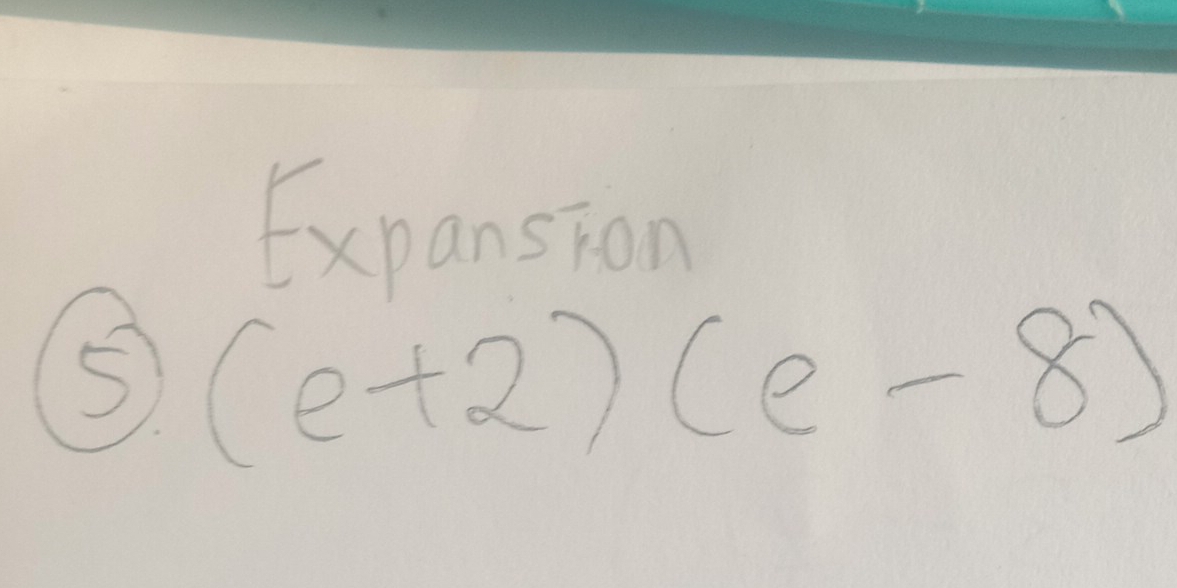 Expansion
⑤. (e+2) (e - 8)